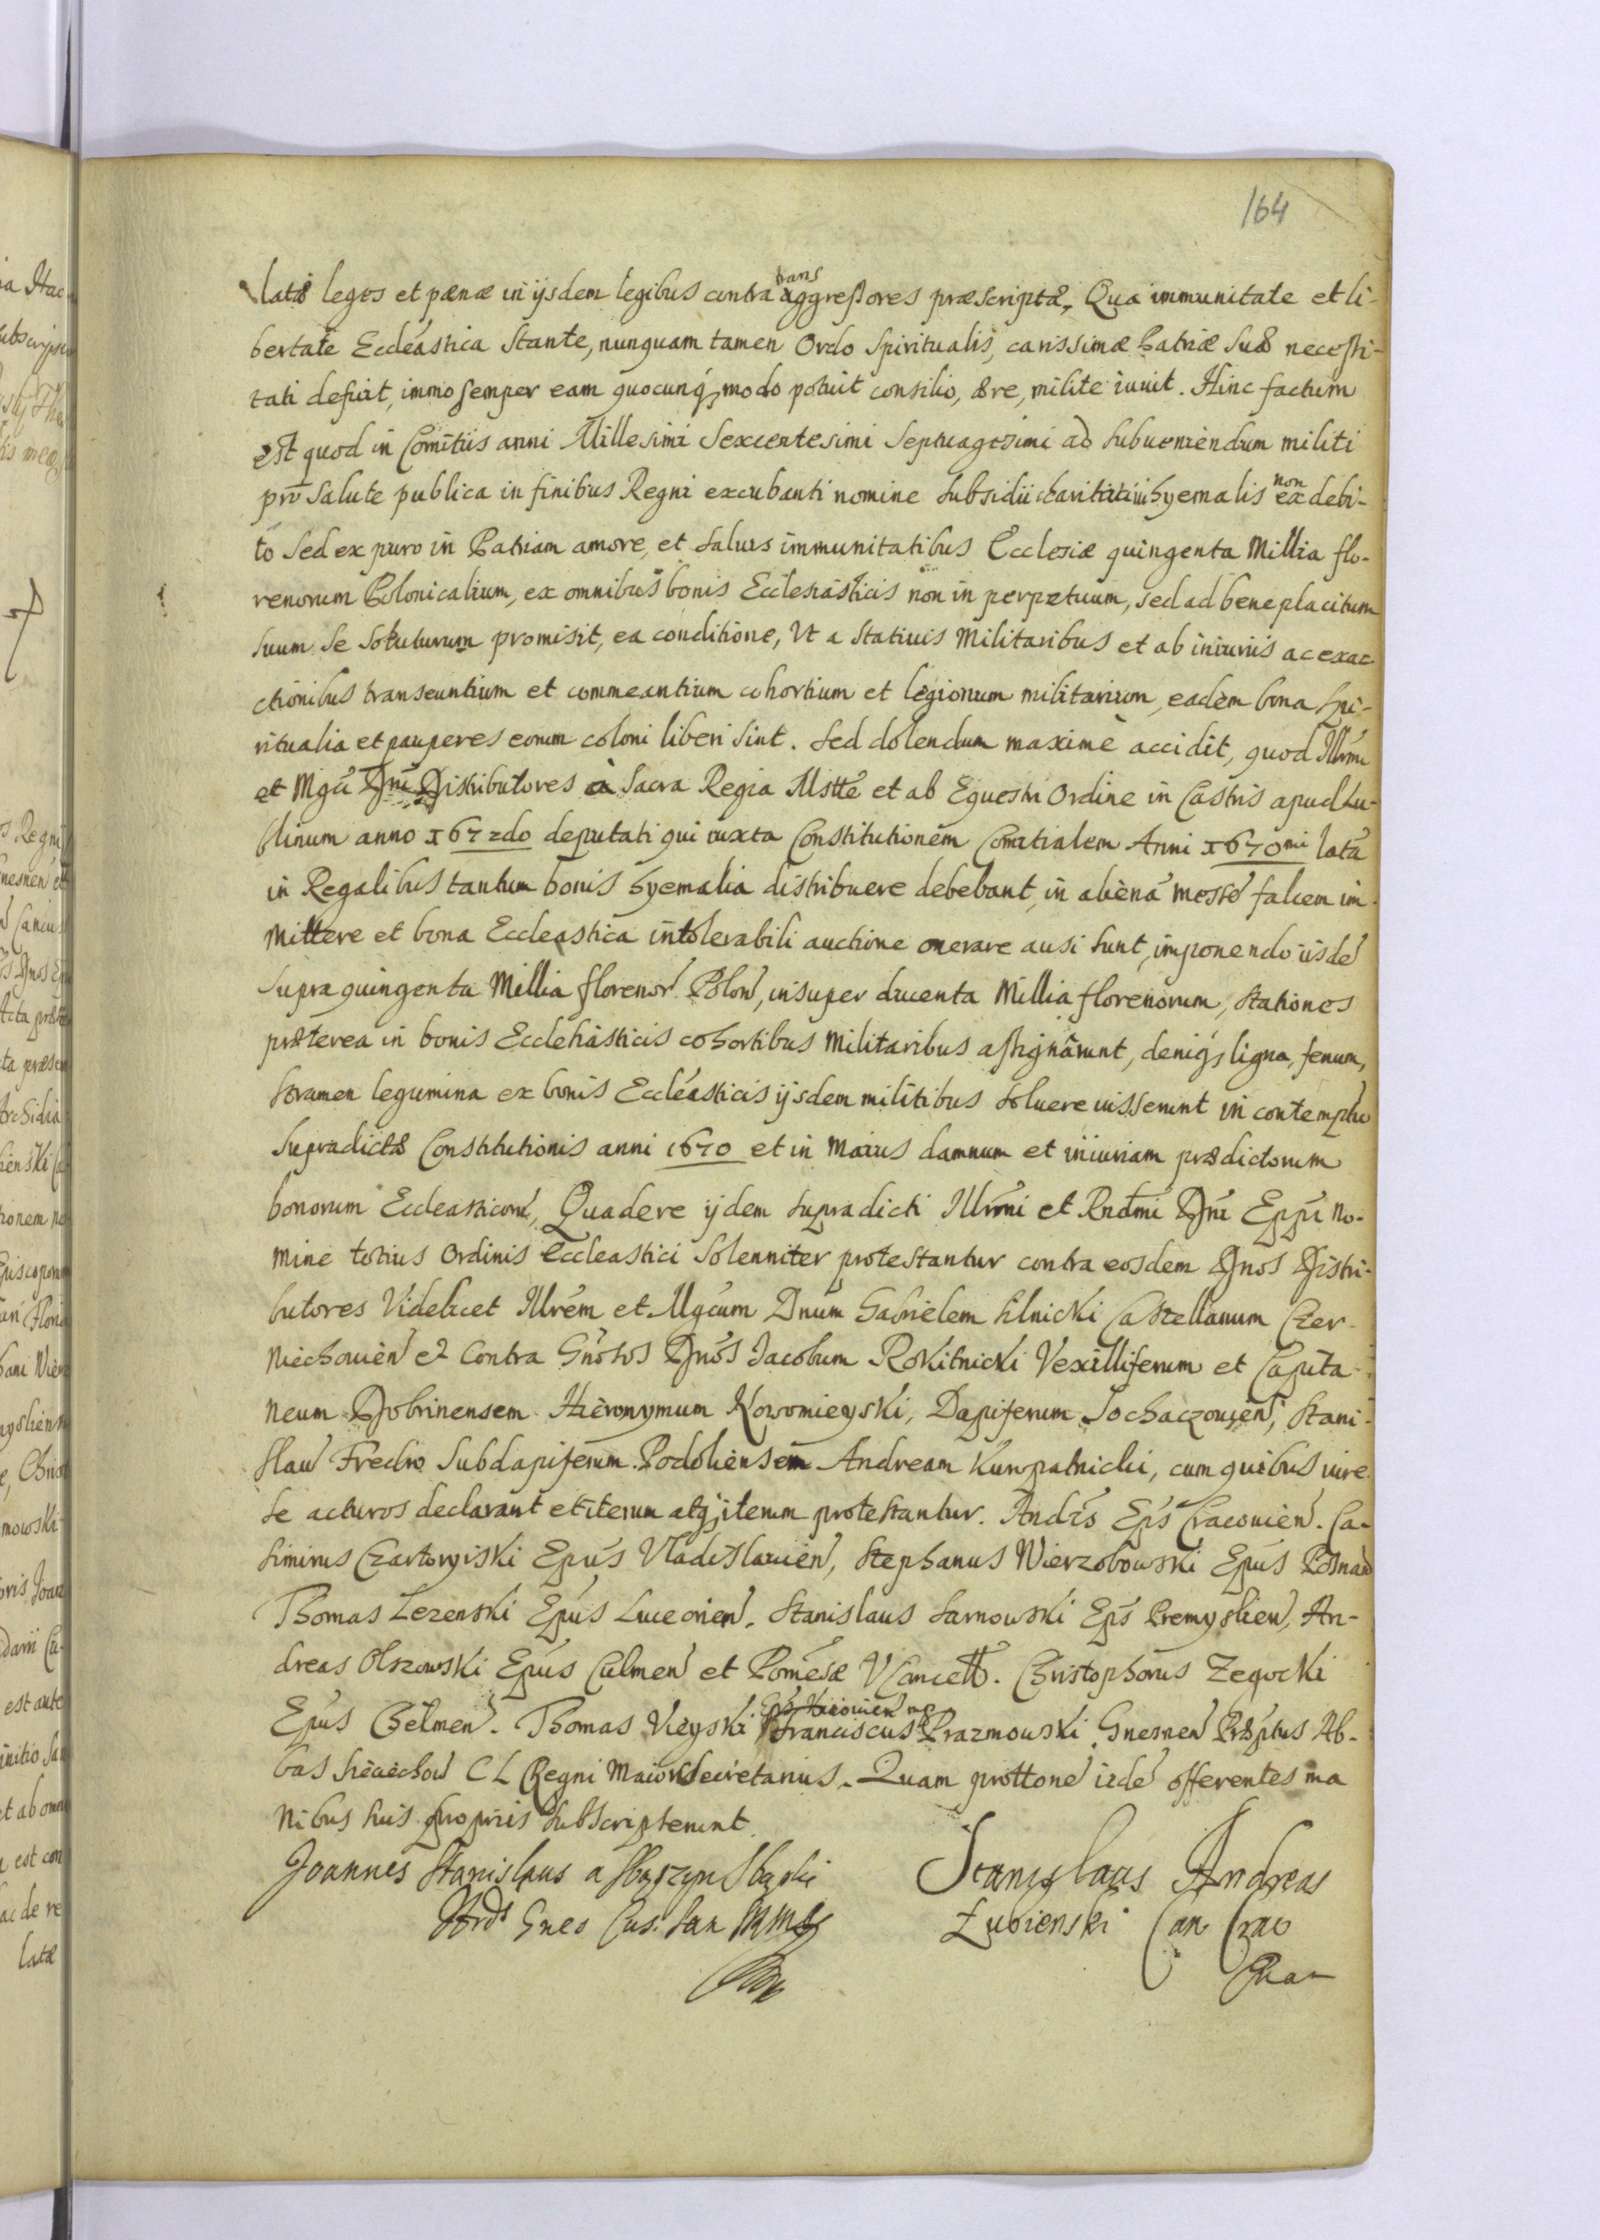 164
latæ leges et pænæ in ijsdem legibus contra trans aggressores præscriptæ, Qua immunitate et li-
bertate Eccleástica stante, nunquam tamen Ordo Spiritualis, carissimæ Patriæ suæ necessi-
tati defuit, immo semper eam quocunq; modo potuit consilio, ære, milite iuuit. Hinc factum
est quod in Comitiis anni Millesimi Sexcentesimi Septuagesimi ad subueniendum militi
pro salute publica in finibus Regni excubanti nomine subsidii charitatiui hyemalis non ex debi-
to sed ex puro in Patriam amore, et saluis immunitatibus Ecclesiæ quingenta Millia flo-
renorum Polonicalium, ex omnibus bonis Ecclesiasticis non in perpetuum, sed ad beneplacitum
suum se soluturum promisit, ea conditione, Vt a statiuis Militaribus et ab iniuriis ac exac
ctionibus transeuntium et commeantium cohortium et legionum militarium, eadem bona Spi-
ritualia et pauperes eorum coloni liberi sint. Sed dolendum maximè accidit, quod Illrmi
et Mgci Dni Distributores à Sacra Regia Mstte et ab Equestri Ordine in Castris apud Lu-
blinum anno 1672do deputati qui iuxta Constitutionem Comitialem Anni 1670mi lata
in Regalibus tantum bonis hyemalia distribuere debebant, in aliena messe falcem im
mittere et bona Eccleastica intolerabili auctione onerare ausi sunt, imponendo iisde
supra quingenta Millia florenor Polon, insuper ducenta Millia florenorum, stationes
præterea in bonis Ecclesiasticis cohortibus Militaribus assignârunt, deniq; ligna, fenum,
stramen legumina ex bonis Eccleasticis ijsdem militibus soluere iusserunt in contemptu
supradictæ Constitutionis anni 1670 et in maius damnum et iniuriam prædictorum
bonorum Eccleasticorū, Qua de re ijdem supradicti Illrmi et Rndmi Dni Eppi no-
mine totius Ordinis Eccleastici solenniter protestantur contra eosdem Dnos Distri-
butores Videlicet Illrem et Mgcum Dnum Gabrielem Silnicki Castellanum Czer-
niechouien et Contra Gnosos Dnos Iacobum Rokitnicki Vexilliferum et Capita-
neum Dobrinensem Hieronymum Nowomieyski, Dapiferum Sochaczouien, Stani-
slau Fredro Subdapiferum Podoliensem Andream Kuropatnicki, cum quibus iure
se acturos declarant et iterum atq; iterum protestantur. Andrs Eps Cracouien. Ca-
simirus Czartoryiski Epus Vladislauien, Stephanus Wierzbowski Epus Posnan
Thomas Lezenski Epus Luceorien. Stanislaus Sarnowski Eps Premyslien, An-
dreas Olszowski Epus Culmen et Pomesæ VCancell. Christophorus Zegocki
Epus Chelmen. Thomas Vieyski Eps Kiiouien mp Franciscus Prazmowski Gnesnen Præptus Ab-
bas Sieciechou CL Regni Maior Secretarius. Quam prottone iide offerentes ma
nibus suis propriis subscripserunt
Joannes Stanislaus a Sbąszyn Sbąski
Ards Gnes Cus. San
Stanislaus Andreas
Łubienski Can Crac